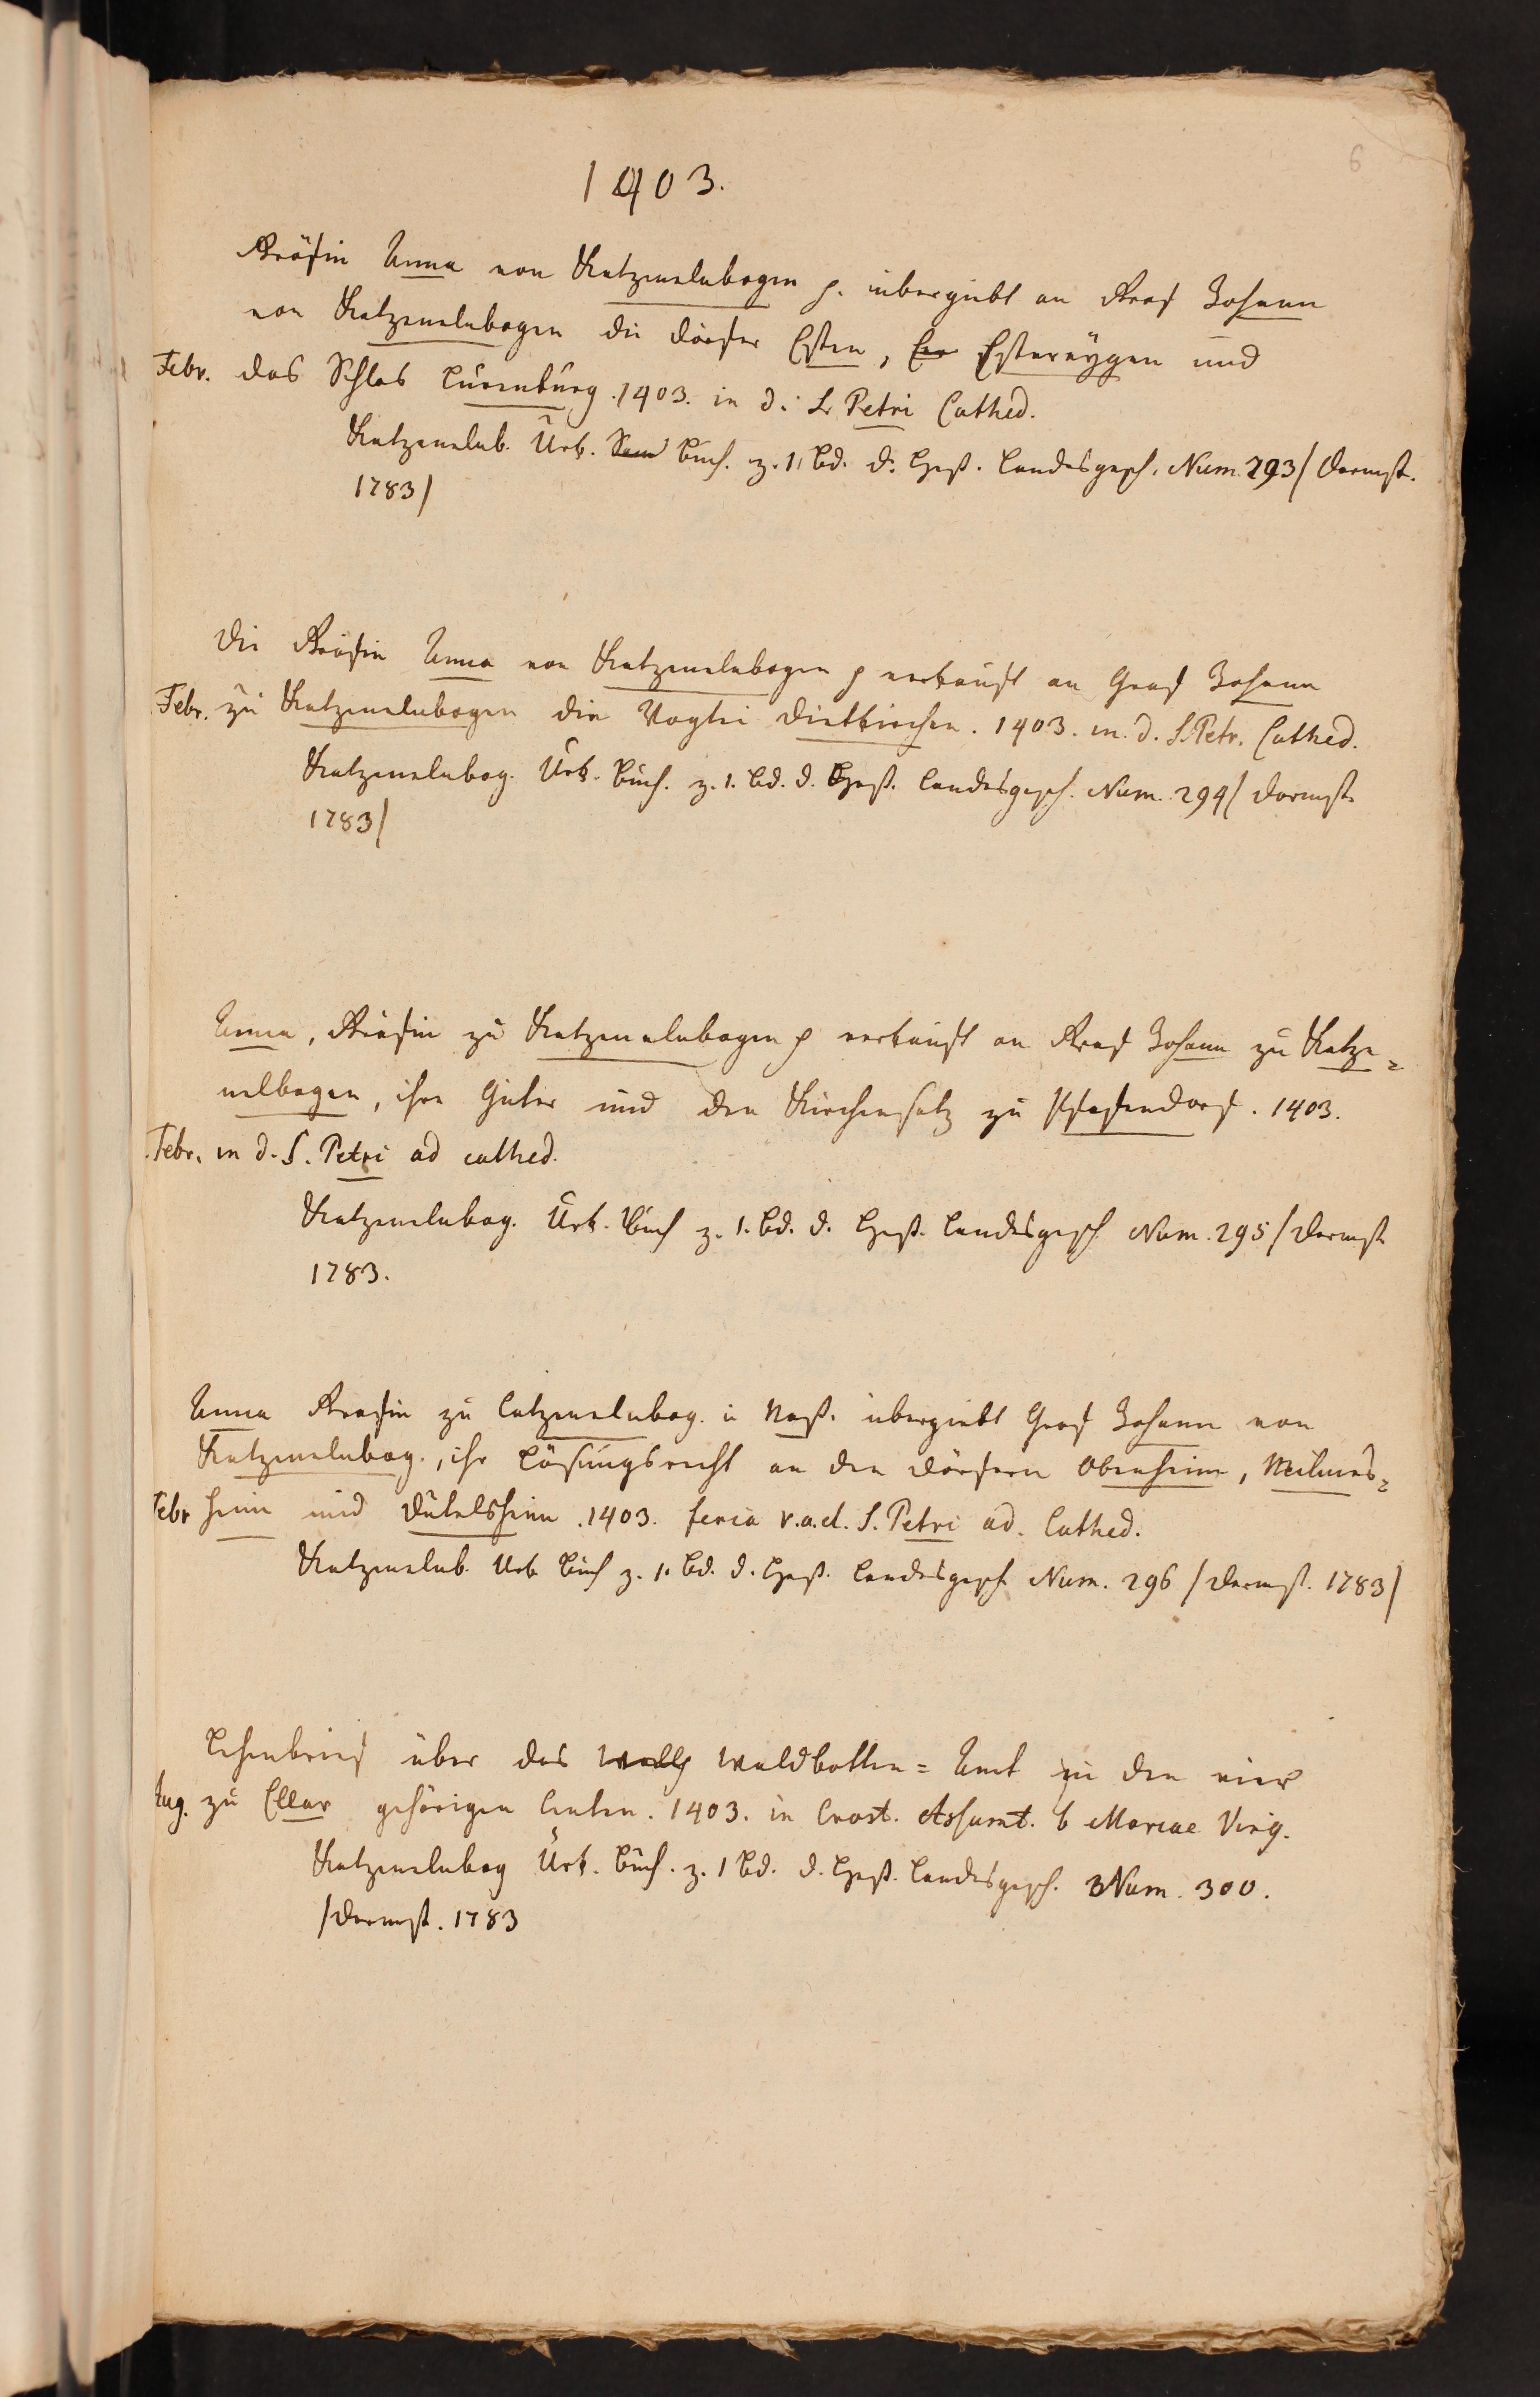 6
1403.
Gräfin Anna von Katzenelnbogen p. übergiebt an Graf Johann
von Katzenelnbogen die Dörfer Esten, Estereygen und
Febr. das Schlos Lurenburg. 1403. in d. S. Petri Cathed.
Katzenelnb. Urk. Buch. z. 1. Bd. d. Heß. Landesgesch. Num. 293/ Darmst.
1783/
Die Gräfin Anna von Katzenelnbogen p verkauft an Graf Johann
Febr. zu Katzenelnbogen die Vogtei Dietkirchen. 1403. in. d. S. Petr. Cathed.
Katzenelnbog. Urk. Buch. z. 1. Bd. d. Heß. Landesgesch. Num. 294/ Darmst.
1783/
Anna, Gräfin zu Katzenelnbogen p verkauft an Graf Johann zu Katze=
nelbogen, ihre Güter und den Kirchensatz zu Pfafendorf. 1403.
Febr. in d. S. Petri ad cathed.
Katzenelnbog. Urk. Buch z. 1. Bd. d. Heß. Landesgesch Num. 295/ Darmst.
1783.
Anna Grafin zu Catzenelnbog. u Naß. übergiebt Graf Johann von
Katzenelnbog., ihr Lösungsrecht an den Dörfern Obenheim, Meilnes=
Febr heim und Dutelsheim. 1403. feria v. a. d. S. Petri ad. Cathed.
Katzenelnb. Urk Buch z. 1. Bd. d. Heß. Landesgesch Num. 296 / Darmst. 1783/
Lehenbrief über das Waldbotten=Amt in den vier
Aug. zu Ellar gehörigen Centen. 1403. in Crast. Assumt. b Mariae Virg.
Katzenelnbog Urk. Buch. z. 1 Bd. d. Heß. Landesgesch. Num. 300.
/Darmst. 1783